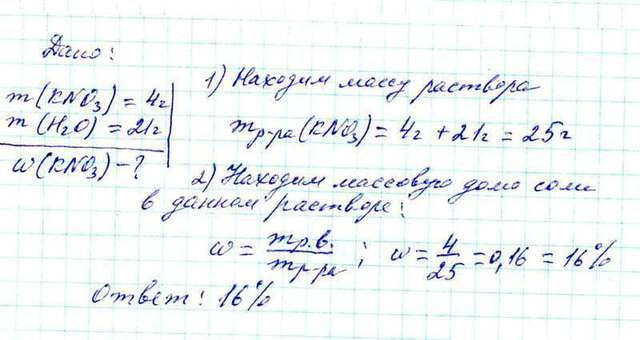 Дано:
m(KNO₃) = 4г
m(H₂O) = 21г
ω(KNO₃) - ?
1) Находим массу раствора
mр-ра(KNO₃) = 4г + 21г = 25г
2) Находим массовую долю соли
в данном растворе:
ω = mр.в. / mр-ра ; ω = 4/25 = 0,16 = 16%
Ответ: 16%